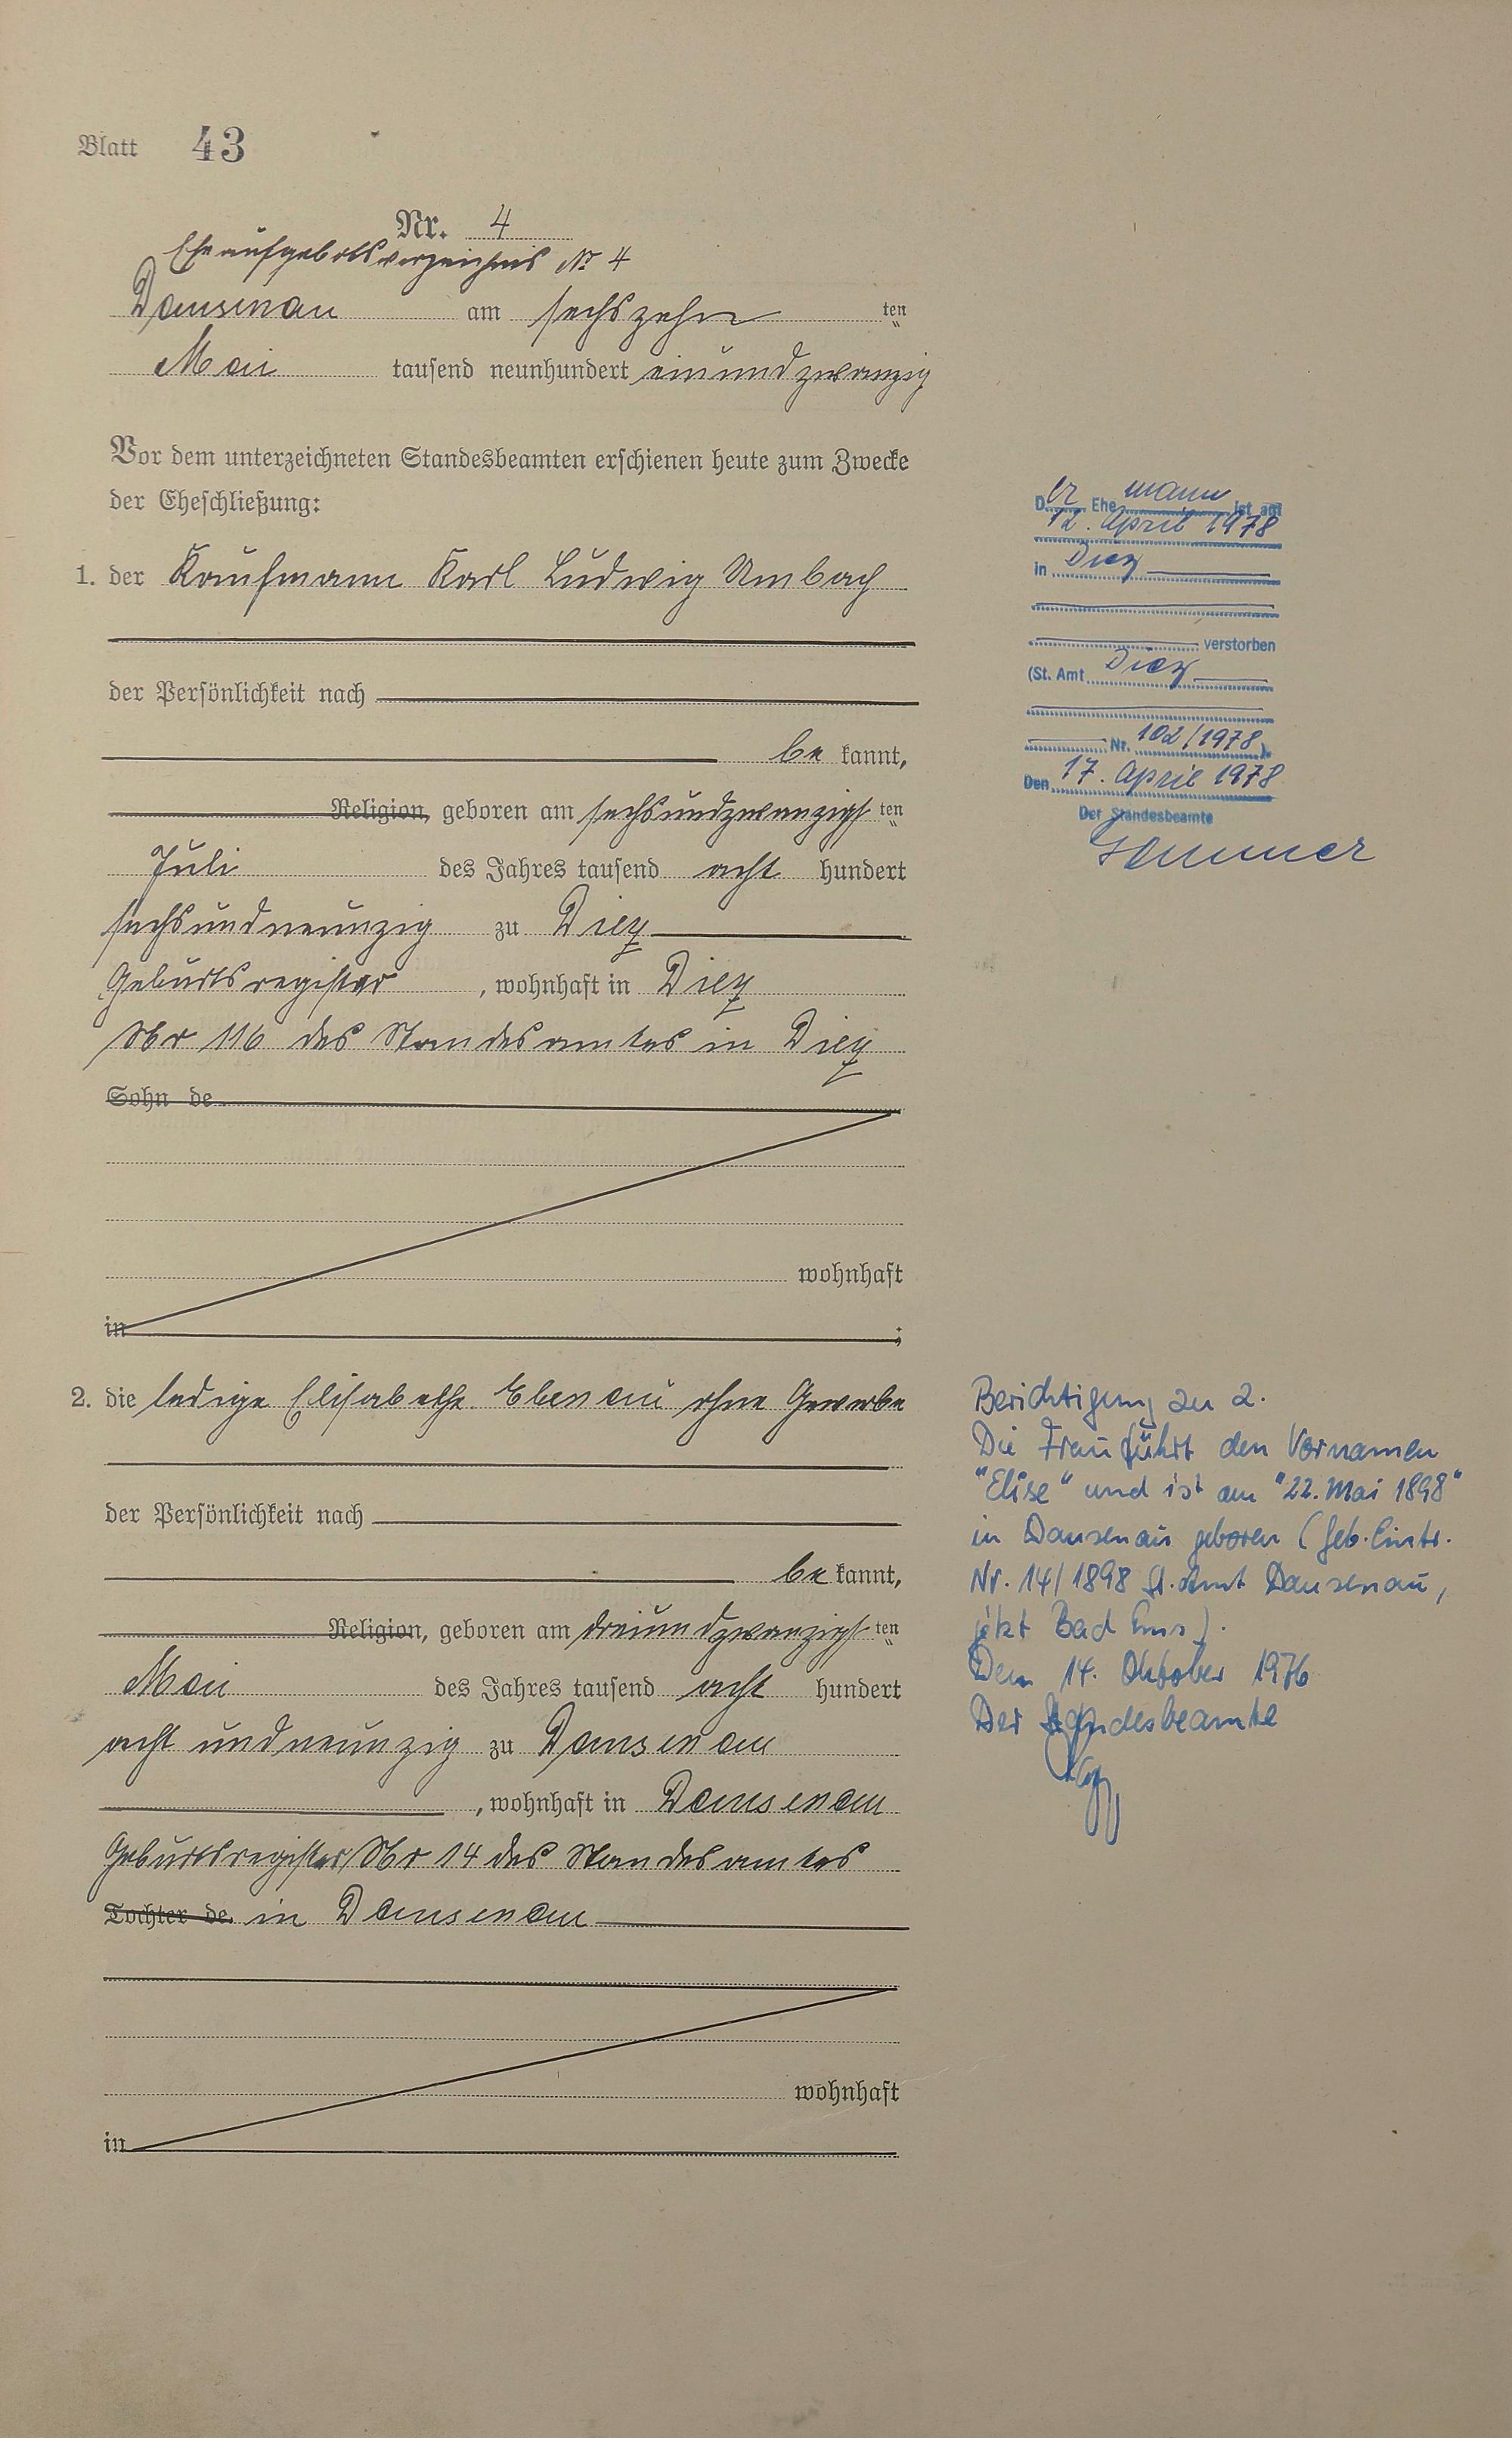 Blatt 43
Nr. 4
Eheaufgebotsverzeichnis Nr 4
Dausenau am sechszehn ten
Mai tausend neunhundert einundzwanzig
Vor dem unterzeichneten Standesbeamten erschienen heute zum Zwecke
der Eheschließung:
1. der Kaufmann Karl Ludwig Umbach
der Persönlichkeit nach
be kannt,
Religion, geboren am sechsundzwanzigsten
Juli des Jahres tausend acht hundert
sechsundneunzig zu Diez
Geburtsregister, wohnhaft in Diez
Nr 116 des Standesamtes in Diez
Sohn de
wohnhaft
in ;
2. die ledige Elisabethe Ebenau ohne Gewerbe
der Persönlichkeit nach
be kannt,
Religion, geboren am dreiundzwanzigsten
Mai des Jahres tausend acht hundert
acht undneunzig zu Dausenau
, wohnhaft in Dausenau
Geburtsregister Nr 14 des Standesamtes
Tochter de in Dausenau
wohnhaft
in
Der Ehemann ist am
12. April 1978
in Diez
verstorben
(St. Amt Diez
Nr. 102/1978).
Den 17. April 1978
Der Standesbeamte
Berichtigung zu 2.
Die Frau führt den Vornamen
"Elise" und ist am "22. Mai 1898"
in Dausenau geboren (Geb. Eintr.
Nr. 14/1898 St. Amt Dausenau,
jetzt Bad Ems).
Den 14. Oktober 1976
Der Standesbeamte